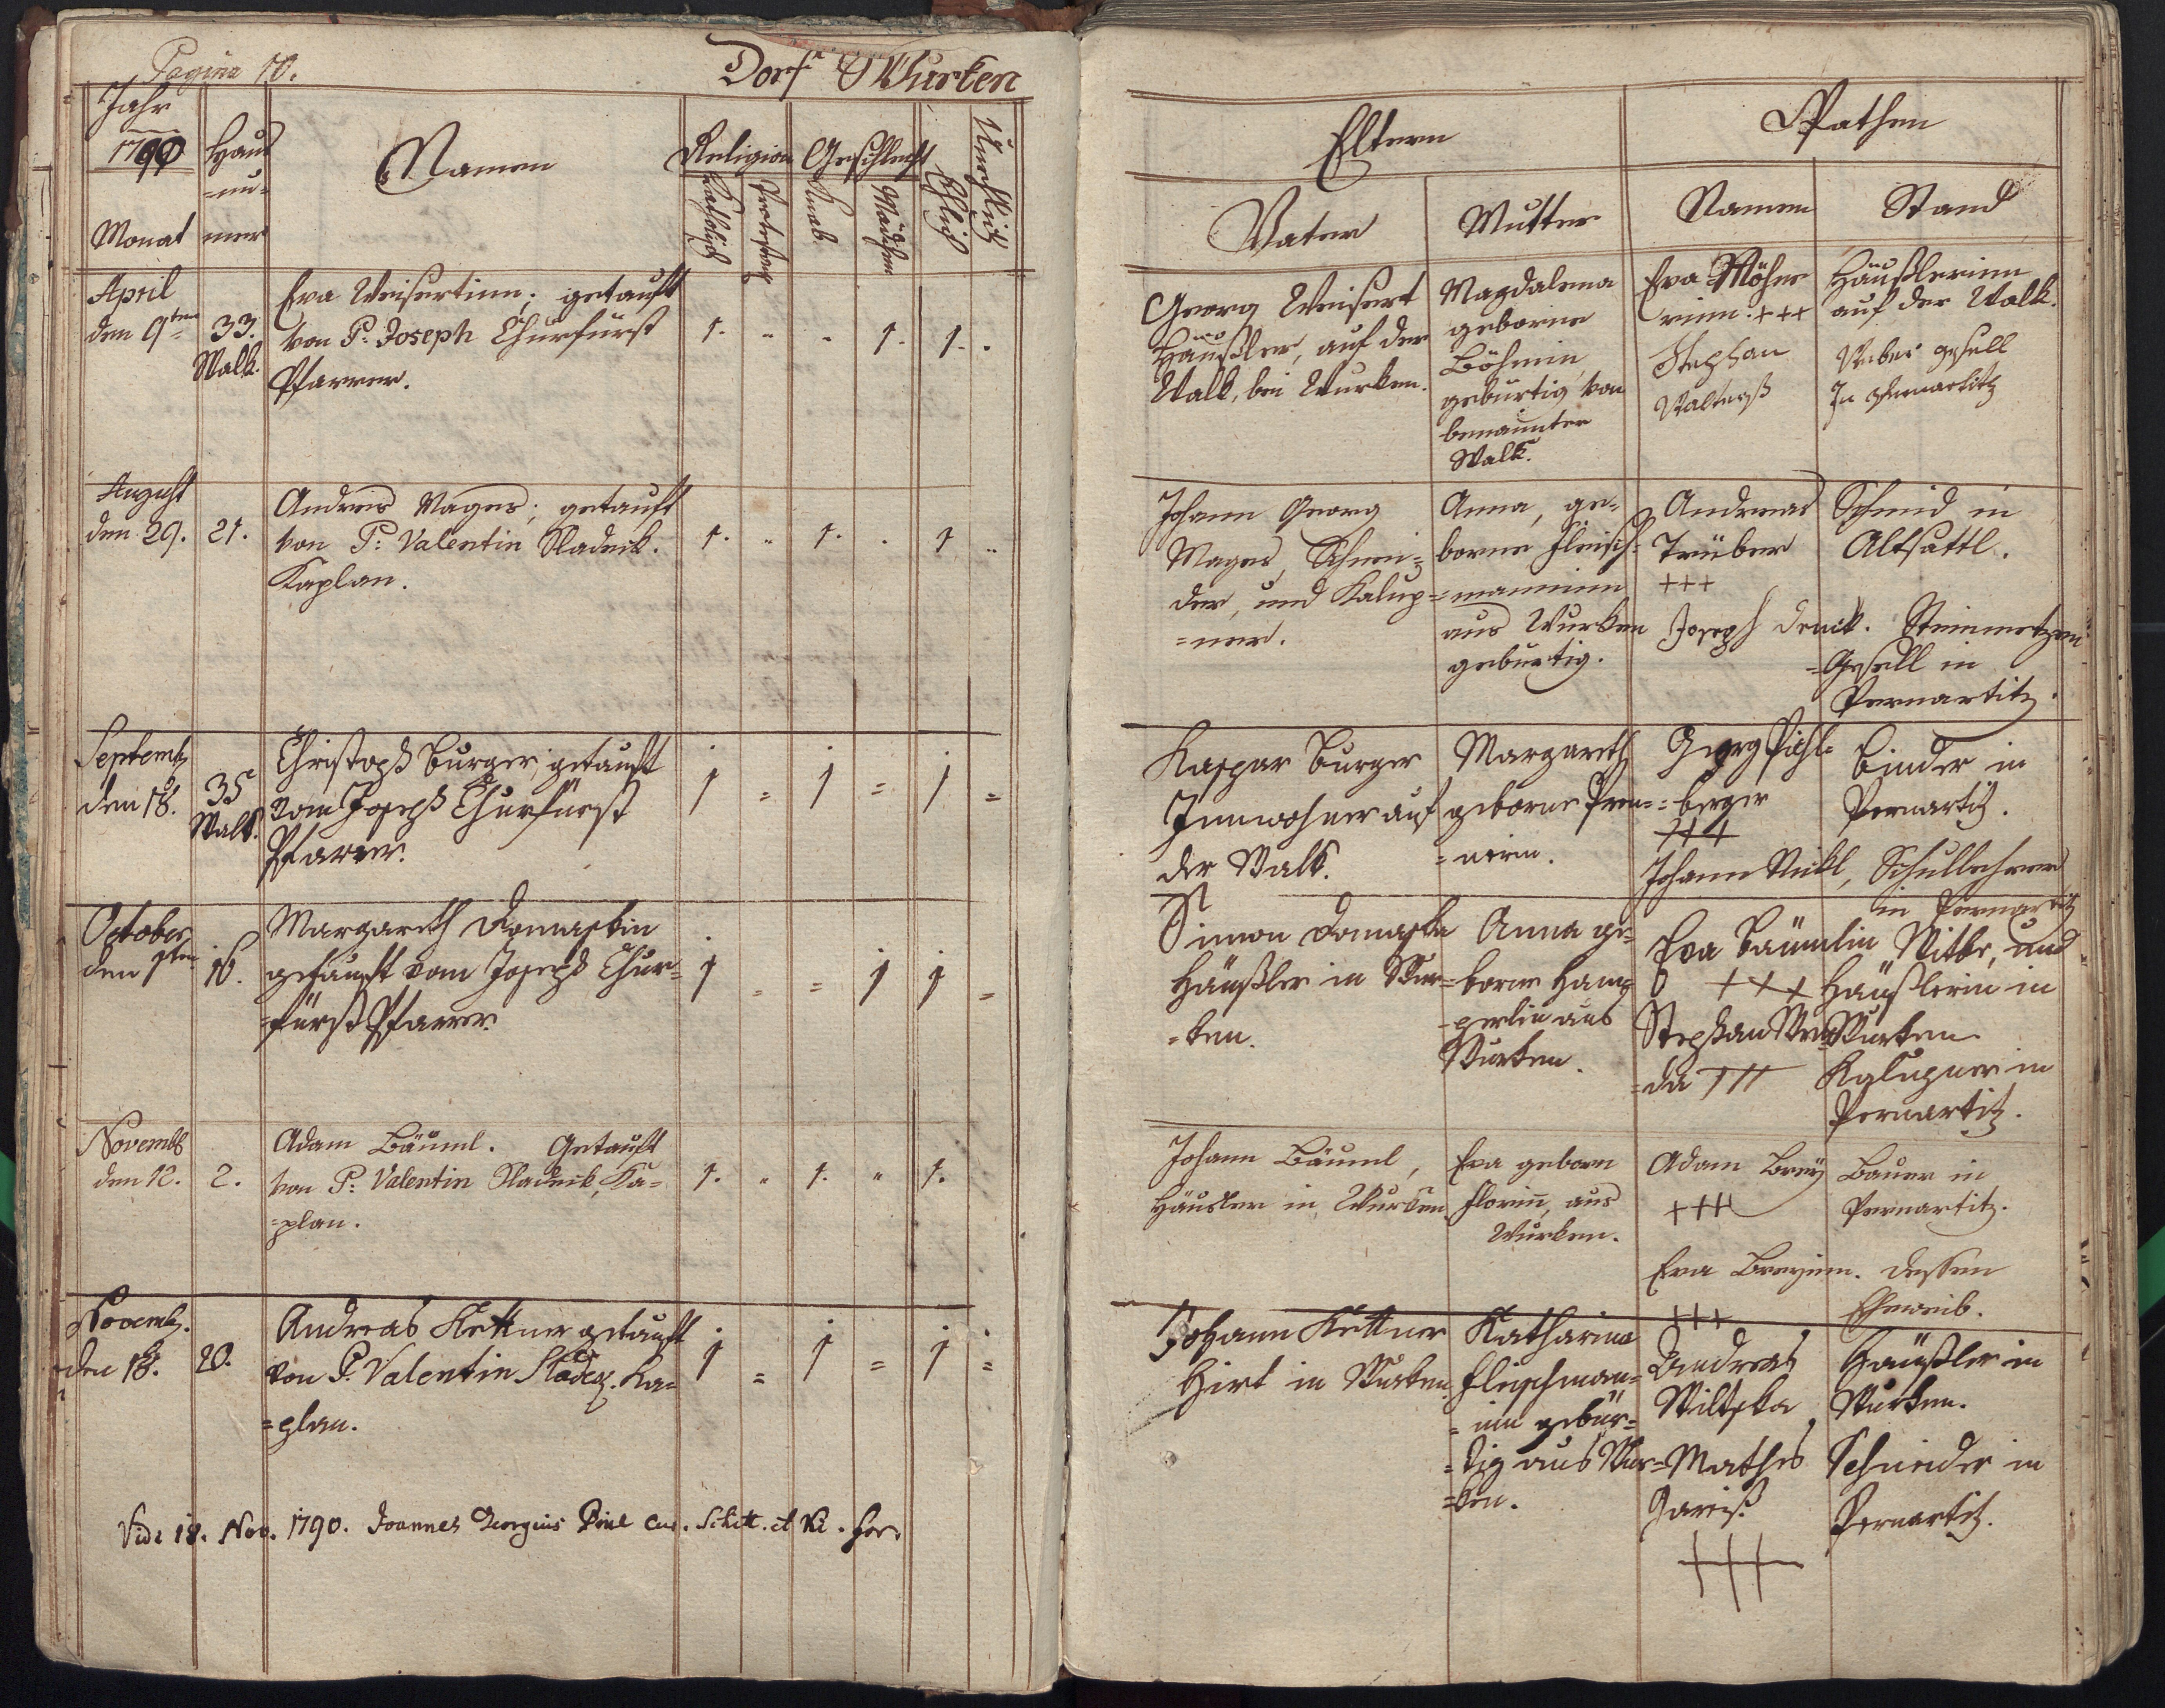 Pagina 10.
Dorf Wurken
Jahr
1790
Monat
Haus
=nu=
mer
Namen
Religion
Katholisch
Protestant
Geschlecht
Knab
Mädchen
Ehlich
Unehlich
April
den 9ten
33.
Walk.
Eva Weisertinn; getauft
von P. Joseph Churfürst
Pfarrer.
1. " - 1. 1. .
August
den 29.
21.
Andreas Mages; getauft
von P: Valentin Sladeck.
Kaplan.
1. " 1. . 1 "
Septemb
den 18.
35
Walk.
Christoph Burger, getauft
vom Joseph Churfürst
Pfarrer.
1 = 1 = 1 =
October
den 1ten
16.
Margareth Domaskin
getauft vom Joseph Chur=
=fürst Pfarrer.
1 = = 1 1 =
Novemb
den 12.
2.
Adam Bäuml. Getauft
von P: Valentin Sladeik, Ka=
=plan.
1. " 1. " 1.
Novemb.
den 18.
20.
Andreas Kettner getauft
von P. Valentin Sladeg. Ka=
=plan.
1 = 1 = 1 =
Vidi 18. Nov. 1790. Joannes Georgius
Eltern
Pathen
Vater
Mutter
Namen
Stand
Georg Weisert
Häußler, auf der
Walk, bei Wurken.
Magdalena
geborne
Böhmin
gebürtig von
benannter
Walk.
Eva Möhre
rinn: +++
Stephan
Häußlerinn
auf der Walk.
Weber gesell
In
Johann Georg
Mages, Schnei=
der, und Kalup=
=ner.
Anna, ge=
borne Fleisch=
=manninn
aus Wurken
gebürtig.
Andreas
Trüber
+++
Joseph Denck.
Schmid in
Altsattl.
Steinmetzen
=Gesell in
Pernartitz.
Kaspar Burger
Innwohner auf
der Walk.
Margareth
geborne Pren=
=nerin.
Georg Pichl=
=berger
+++
Johann Nickl,
Binder in
Pernartitz.
Schullehrer
in Pernartitz
Simon Domaska
Häußler in Wur=
=ken.
Anna ge=
borne Ham
perlin aus
Wurken.
Eva Bäumlin
+++
Stephan
=da +++
Witbe, und
Häußlerin in
Wurken
Kalupner in
Pernartitz.
Johann Bäuml,
Häusler in Wurken
Eva geborn
Florinn, aus
Wurken.
Adam Brey
+++
Eva Breyinn.
+++
Bauer in
Pernartitz.
dessen
Eheweib.
Johann Kettner
Hirt in Wurken
Katharina
Fleischman=
=nin gebür=
=tig aus Wur=
=ken.
Andreas
Wiltska
Mathes
Gareiß.
+++
Häußler in
Wurken.
Schneider in
Pernartitz.